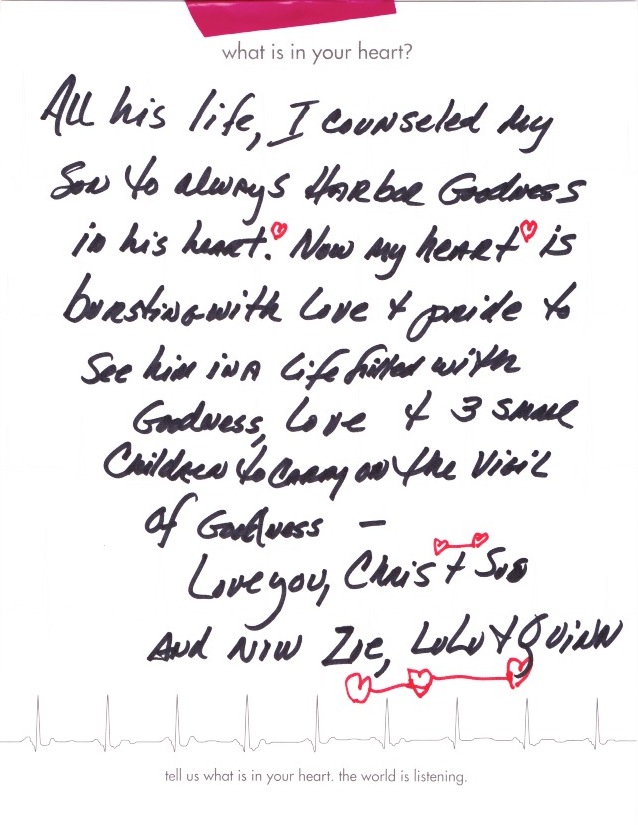 what is in your heart?
All his life, I counseled my
Son to always Harbor Goodness
in his heart. Now my heart is
bursting with Love + pride to
See him in a Life filled with
Goodness, Love + 3 small
Children to carry on the Vigil
of Goodness —
Love you, Chris + Sue
And now Zoe, LuLu + Quinn
tell us what is in your heart. the world is listening.